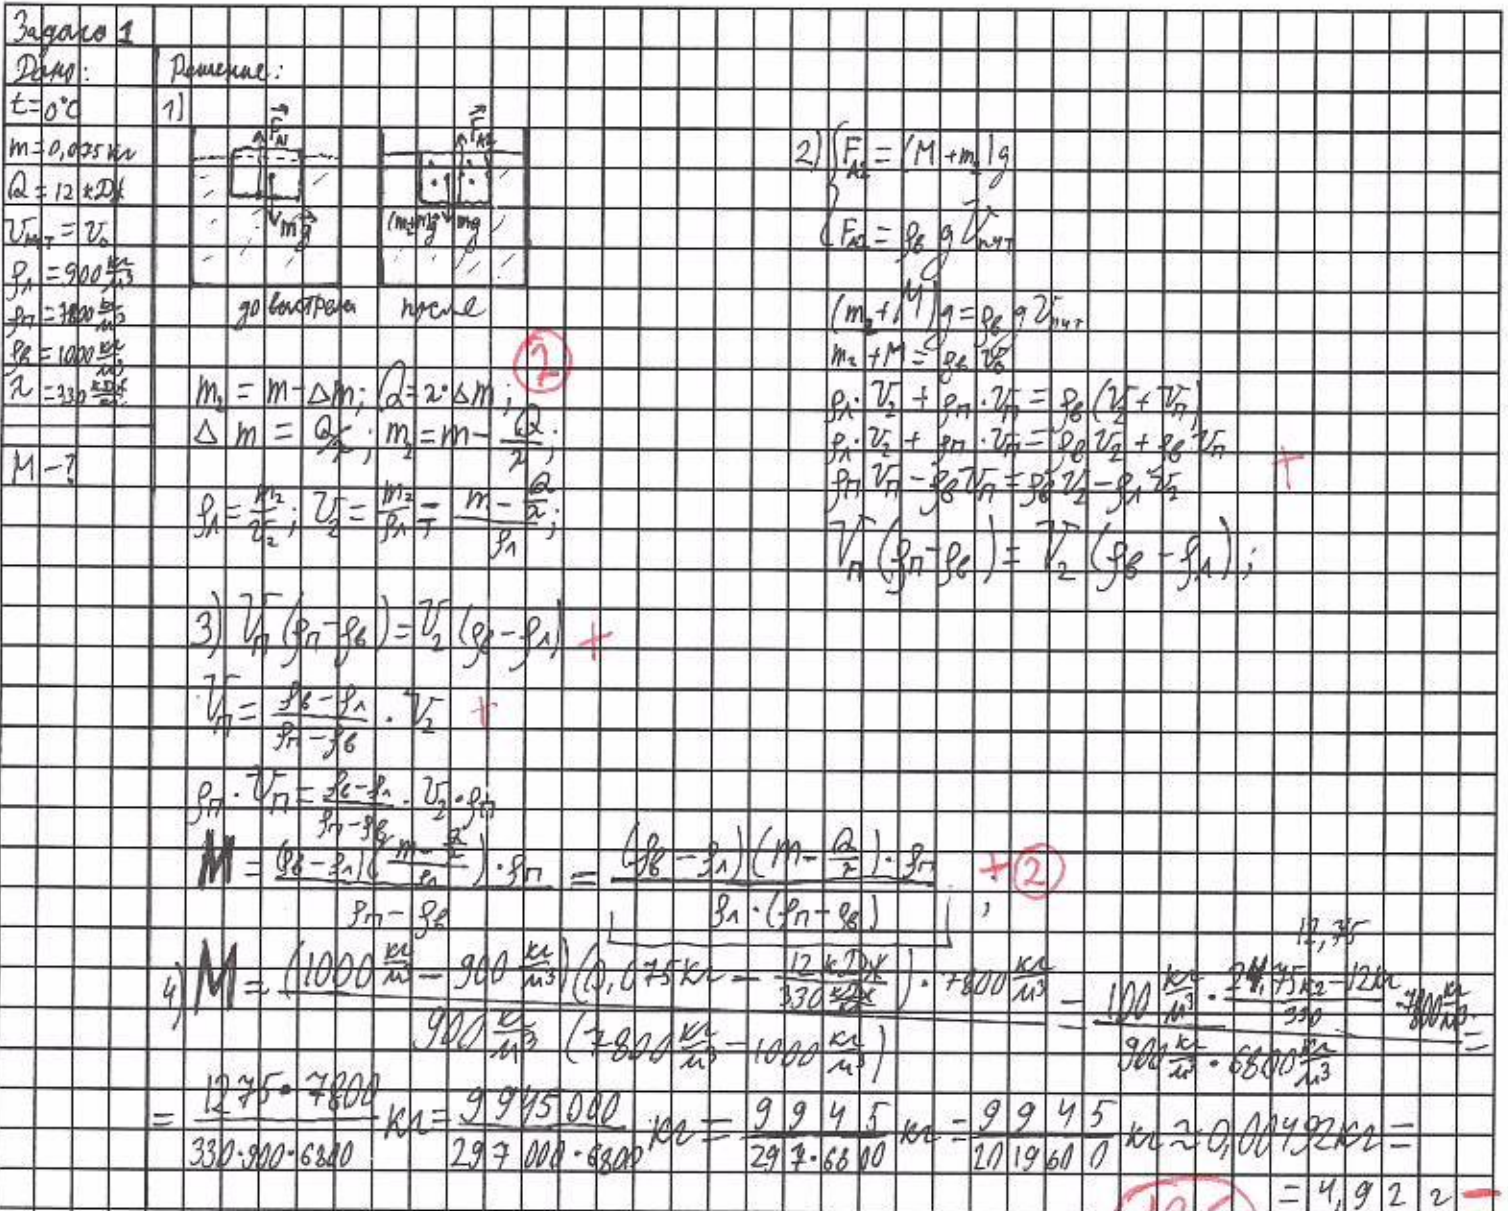 Задача 1
Дано:
t = 0°C
m = 0,075 кг
Q = 12 кДж
V = V₀
ρл = 900 кг/м³
ρп = 7800 кг/м³
ρв = 1000 кг/м³
λ = 330 кДж/кг
M - ?
Решение:
1)
F⃗A1
mg⃗
до выстрела
F⃗A2
(m₂+M)g⃗
mg
после
2
m₂ = m - Δm; Q = λ · Δm;
Δm = Q/λ; m₂ = m - Q/λ;
ρл = m₂/V₂; V₂ = m₂/ρл = (m - Q/λ)/ρл;
2) { FA2 = (M + m₂)g
FA2 = ρв g Vпчт
(m₂ + M)g = ρв g Vпчт
m₂ + M = ρв V₀
ρл · V₂ + ρп · Vп = ρв (V₂ + Vп)
ρл · V₂ + ρп · Vп = ρв V₂ + ρв Vп +
ρп Vп - ρв Vп = ρв V₂ - ρл V₂
Vп (ρп - ρв) = V₂ (ρв - ρл);
3) Vп (ρп - ρв) = V₂ (ρв - ρл) +
Vп = (ρв - ρл)/(ρп - ρв) · V₂ +
ρп · Vп = (ρв - ρл)/(ρп - ρв) · V₂ · ρп
M = (ρв - ρл)((m - Q/λ)/ρл) · ρп / (ρп - ρв) = (ρв - ρл)(m - Q/λ) · ρп / (ρл · (ρп - ρв)); + 2
12,75
4) M = (1000 кг/м³ - 900 кг/м³)(0,075 кг - 12 кДж/330 кДж/кг) · 7800 кг/м³ / 900 кг/м³ (7800 кг/м³ - 1000 кг/м³) = 100 кг/м³ · (24,75 кг - 12 кг)/330 · 7800 кг/м³ / 900 кг/м³ · 6800 кг/м³ =
= 1275 · 7800 / 330·900·6800 кг = 9945000 / 297000·6800 кг = 9945 / 297·6800 кг = 9945 / 2019600 кг ≈ 0,00492 кг =
= 4,92 г -